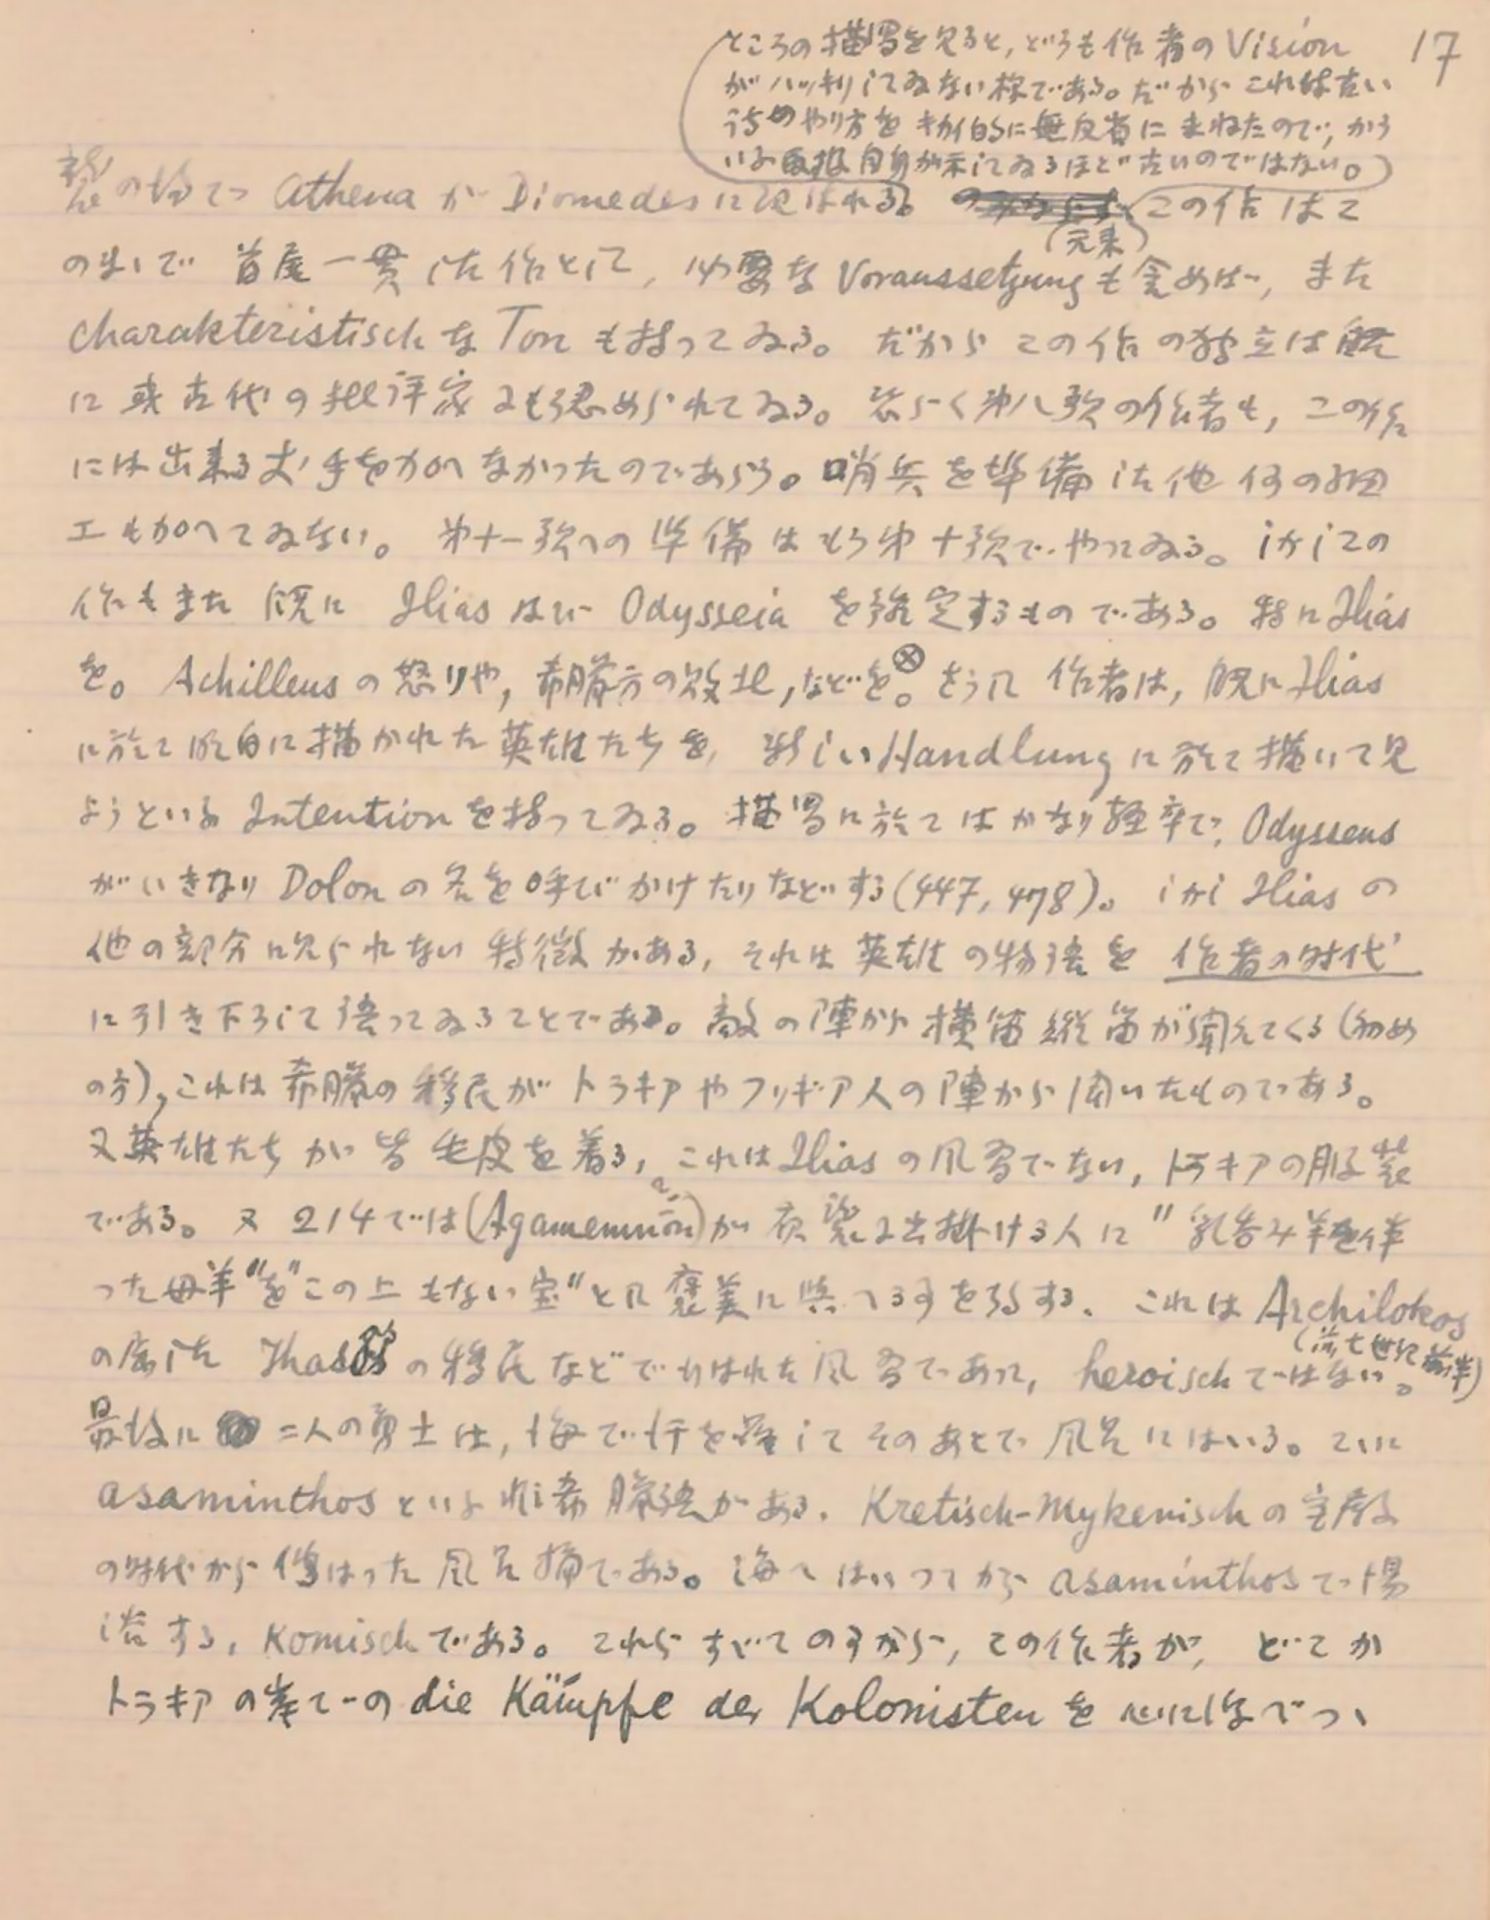 17
ところの描写を見ると,どうも作者のVision
がハッキリしてゐない様である。だから これは古い
うたのやり方を 機械的に無反省に まねたので,かう
いふ 自身が示してゐるほど 古いのではない。
の場で Athena が Diomedes に はれる。 この作はこ
(元来)
のまゝで 首尾一貫した作として, 必要な Voraussetzung も含めば, また
charakteristisch な Ton も持ってゐる。 だから この作の独立は既
に 或古代の批評家にも認められてゐる。 恐らく第八歌の作者も, この作
には出来る丈手を加へなかったのであらう。哨兵を準備した他何の細
工も加へてゐない。 第十一歌への準備はもう第十歌でやってゐる。しかしこの
作もまた 既に Ilias 及び Odysseia を予定するものである。特にIlias
を。 Achilleus の怒りや, 希臘方の敗北,などを⊗。さうして 作者は, 既にIlias
に於て明白に描かれた英雄たちを, 新しいHandlungに於て描いて見
ようといふ Intention を持ってゐる。 描写に於てはかなり軽率で, Odysseus
がいきなり Dolon の名を呼びかけたりなどする(447, 478)。 しかし Ilias の
他の部分に見られない 特徴がある, それは 英雄の物語を 作者の時代
に引き下ろして語ってゐることである。敵の陣から横笛縦笛が聞えてくる(初め
の方),これは希臘の移民が トラキアやフリギア人の陣から聞いたものである。
又英雄たちが皆毛皮を着る, これはIliasの風習でない, トラキアの服装
である。 又 214では(Agamemnon)が 夜襲に出掛ける人に "乳呑み羊を伴
った母羊"を"この上もない宝"として褒美に与へる事を約する. これは Archilokos
(前七世紀前半)
の属した Thasos の移民などで行はれた風習であって, heroisch ではない。
最後に 二人の勇士は, 海で汗を落してそのあとで 風呂にはいる。こゝに
asaminthos といふ非希臘語がある. Kretisch-Mykenisch の宮殿
の時代から伝はった 風呂桶である。 海へはいってから asaminthos で湯
浴する, Komisch である。これらすべての事から, この作者が, どこか
トラキアの岸での die Kämpfe der Kolonisten を 心に浮べつゝ